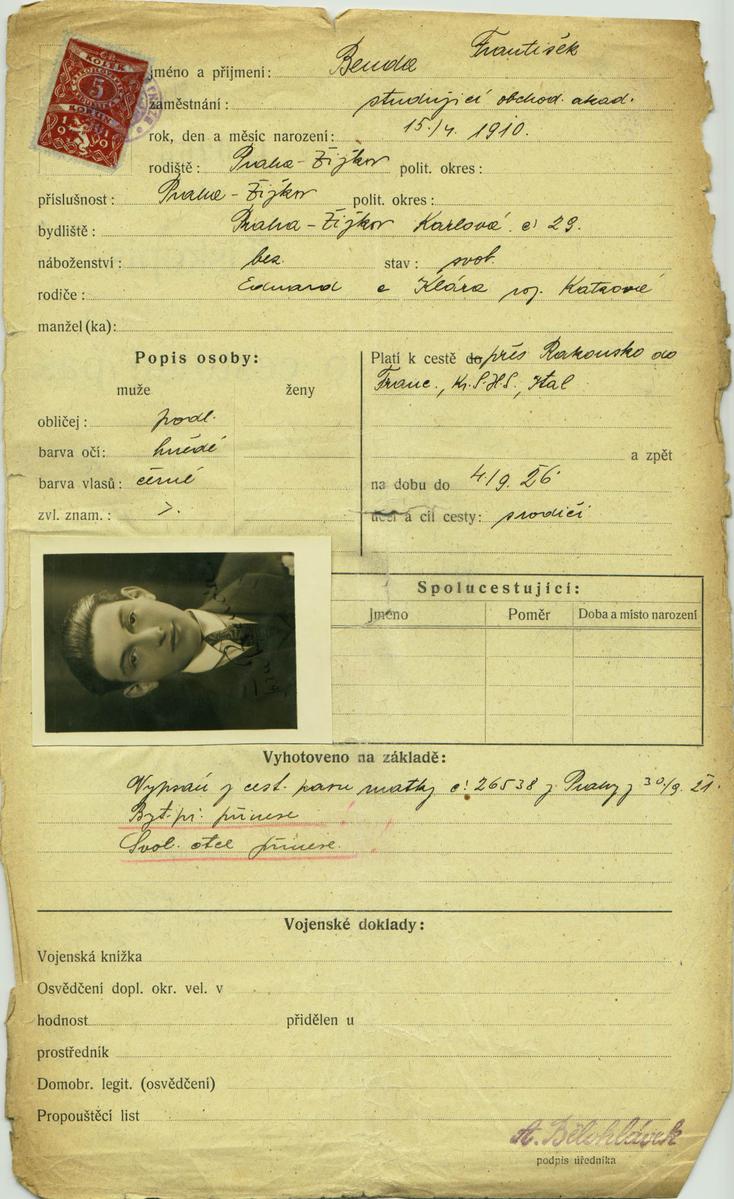 5
jméno a příjmení: Benda František
zaměstnání: studující obchod. akad.
rok, den a měsíc narození: 15./4. 1910.
rodiště: Praha-Žižkov polit. okres:
příslušnost: Praha-Žižkov polit. okres:
bydliště: Praha-Žižkov Karlová č 29.
náboženství: bez. stav: svob.
rodiče: Eduard a Klára roz. Katzové
manžel (ka):
Popis osoby:
muže ženy
obličej: podl.
barva očí: hnědé
barva vlasů: černé
zvl. znam.:
Platí k cestě do přes Rakousko do
Franc., Kr. S.H.S., Ital
a zpět
na dobu do 4/9. 26
účel a cíl cesty: s rodiči
Spolucestující:
Jméno Poměr Doba a místo narození
Vyhotoveno na základě:
cest. pasu matky č. 26538 z Prahy z 30/9. 21.
přinese
Svol. otce přinese.
Vojenské doklady:
Vojenská knížka
Osvědčení dopl. okr. vel. v
hodnost přidělen u
prostředník
Domobr. legit. (osvědčení)
Propouštěcí list
A. Bělohlávek
podpis úředníka